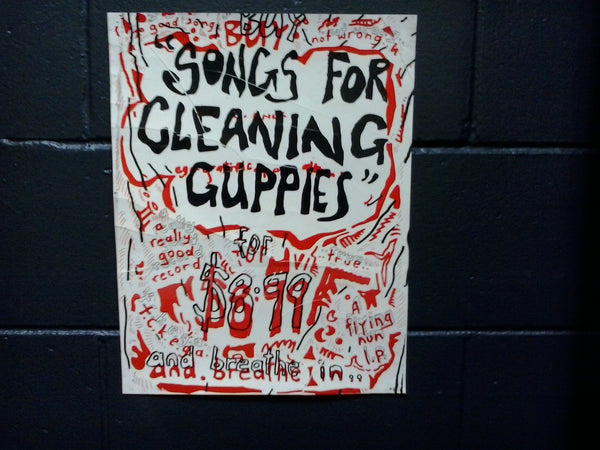 good song
BUY!
not wrong
"SONGS FOR
CLEANING
GUPPIES"
for
$8.99
a
really
good
record
..true..
A
flying
nun
L.P.
and breathe in..